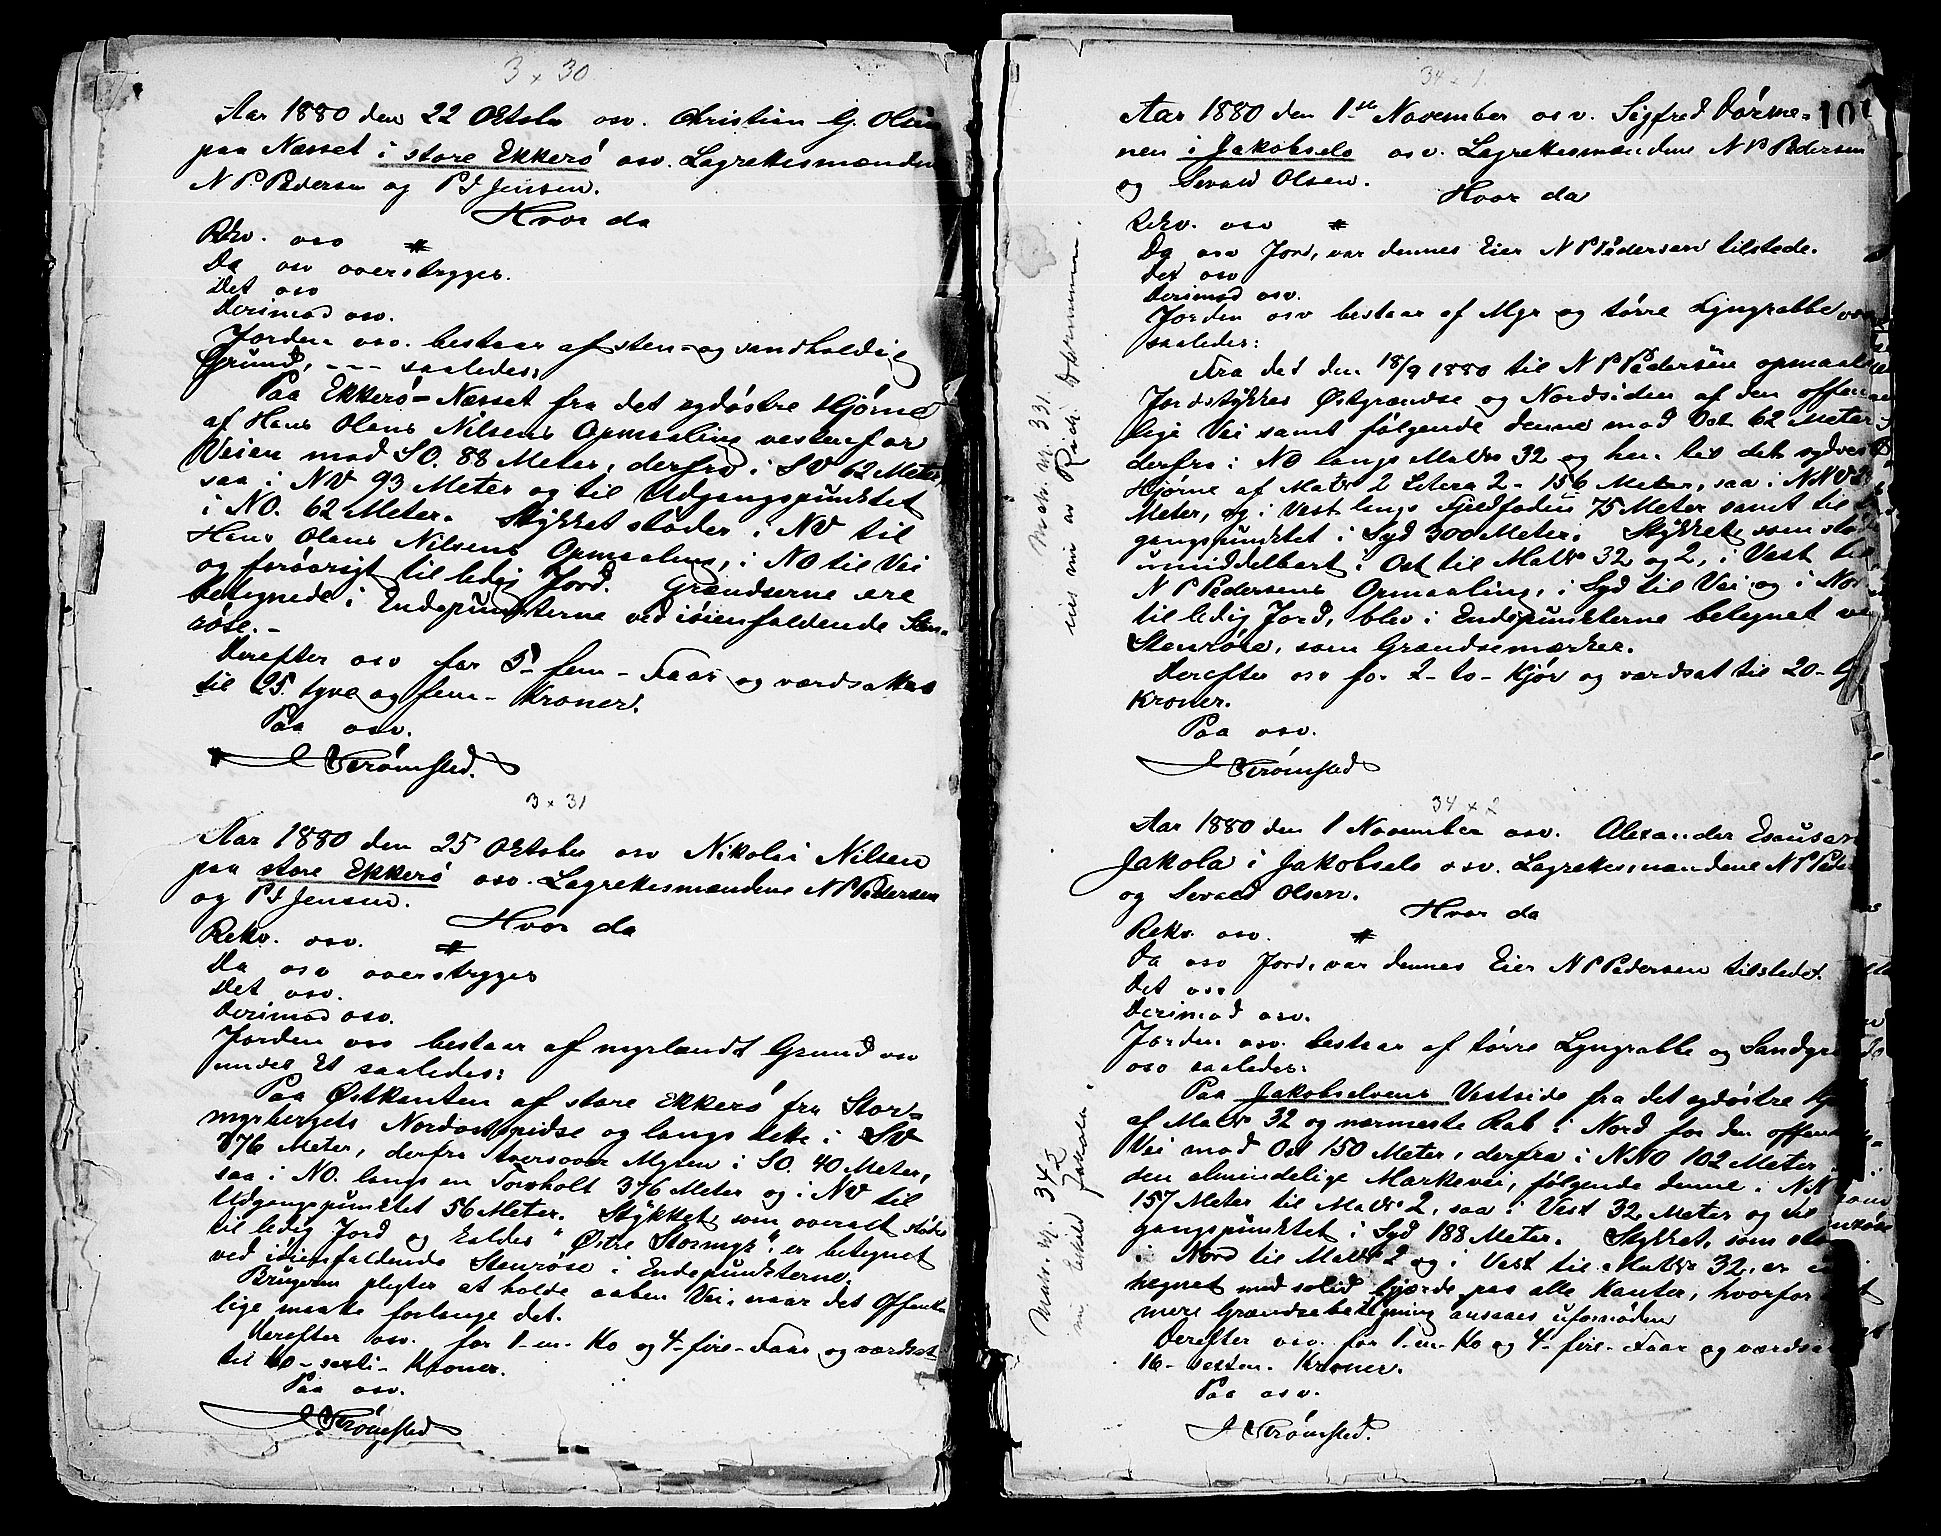 3 x 30
Aar 1880 den 22 Oktober osv. Christian G. Olsen
paa Næsset i store Ekkerö osv. Lagrettesmændene
N P. Pedersen og P J Jensen.
Hvor da
Rekv. osv #
Da osv overstryges.
Det osv
Derimod osv.
Jorden osv. bestaar af sten- og sandholdig
Grund, --- saaledes:
Paa Ekkerö-Næsset fra det sydöstre Hjörne
af Hans Olaus Nilsens Opmaaling vestenfor
Veien mod SO. 88 Meter, derfra i SV 62 Meter,
saa i NV 93 Meter og til Udgangspunktet
i NO. 62 Meter. Stykket stöder i NV til
Hans Olaus Nilsens Opmaaling, i NO til Vei
og forövrigt til ledig Jord. Grændserne ere
betegnede i Endepunkterne ved iöienfaldende Sten-
röse.-
Derefter osv for 5- fem - Faar og værdsattes
til 25. tyve og fem - Kroner.
Paa osv.
J Strömsted.
3 x 31
Aar 1880 den 25 Oktober osv Nikolai Nilsen
paa store Ekkerö osv. Lagrettesmændene N P Pedersen
og P J Jensen.
Hvor da
Rekv. osv. #
Da osv overstryges
Det osv.
Derimod osv.
Jorden osv bestaar af myrlændt Grund osv
undt. Et saaledes:
Paa Östkanten af store Ekkerö fra Stor-
myrbergets Nordostspidse og langs dette i SV
376 Meter, derfra tversover Myren i SO. 40 Meter,
saa i NO. langs en Torvholt 376 Meter og i NV til
Udgangspunktet 56 Meter. Stykket, som overalt stöder
til ledig Jord og kaldes "Östre Stormyr", er betegnet
ved iöienfaldende Stenröse i Endepunkterne.
Brugeren pligter at holde aaben Vei, naar det Offent-
lige maatte forlange det.
Derefter osv. for 1- en- Ko og 4- fire- Faar og værdsat
til 60- sexti- Kroner.
Paa osv.
J Strömsted
34 x 1
101
Aar 1880 den 1ste November osv. Sigfred Dörme-
nen i Jakobselv osv. Lagrettesmændene N P Pedersen
og Sevald Olsen.
Hvor da
Rekv. osv #
Da osv Jord, var dennes Eier N P Pedersen tilstede.
Det osv
Derimod osv.
Jorden osv bestaar af Myr og törre Lyngrabbe
saaledes:
Fra det den 18/9 1880 til N P Pedersen opmaalte
Jordstykkes Östgrændse og Nordsiden af den offent-
lige Vei samt fölgende denne mod Ost 62 Meter
derfra i NO langs Matr 32 og hen til det sydvest
Hjörne af Matr 2 Litera 2 - 156 Meter, saa i NNV
Meter, og i Vest langs Fjeldfoden 75 Meter samt til
gangspunktet i Syd 300 Meter. Stykket, som stö
umiddelbart i Ost til Matr 32 og 2, i Vest til
N P Pedersens Opmaaling, i Syd til Vei og i Nord
til ledig Jord, blev i Endepunkterne betegnet ved
Stenröse, som Grændsemærker.
Derefter osv for 2- to- Kjör og værdsat til 20-
Kroner.
Paa osv.
J Strömsted
Matr. nr. 331
34 x 2
Aar 1880 den 1 November osv. Alexander Esausen
Jakola i Jakobselv osv. Lagrettesmændene N P Peder
og Sevald Olsen.
Hvor da
Rekv. osv. #
Da osv Jord, var dennes Eier N P Pedersen tilstede.
Det osv
Derimod osv.
Jorden osv. bestaar af törre Lyngrabbe og Sandgrund
osv saaledes:
Paa Jakobselvens Vestside fra det sydöstre Hj
af Matr 32 og nærmeste Rab i Nord for den offent
Vei mod Ost 150 Meter, derfra i NNO 102 Meter
den almindelige Markevei, fölgende denne i NN
157 Meter til Matr 2, saa i Vest 32 Meter og til
gangspunktet i Syd 188 Meter. Stykket, som stö
i Nord til Matr 2 og i Vest til Matr 32, er
hegnet med solid Gjærde paa alle Kanter, hvorfor
mere Grændsebetegning ansaaes ufornöden
Derefter osv. for 1- en- Ko og 4- fire- Faar og værdsat
16- sexten- Kroner.
Paa osv.
J Strömsted.
Matr. nr. 342
Jakola